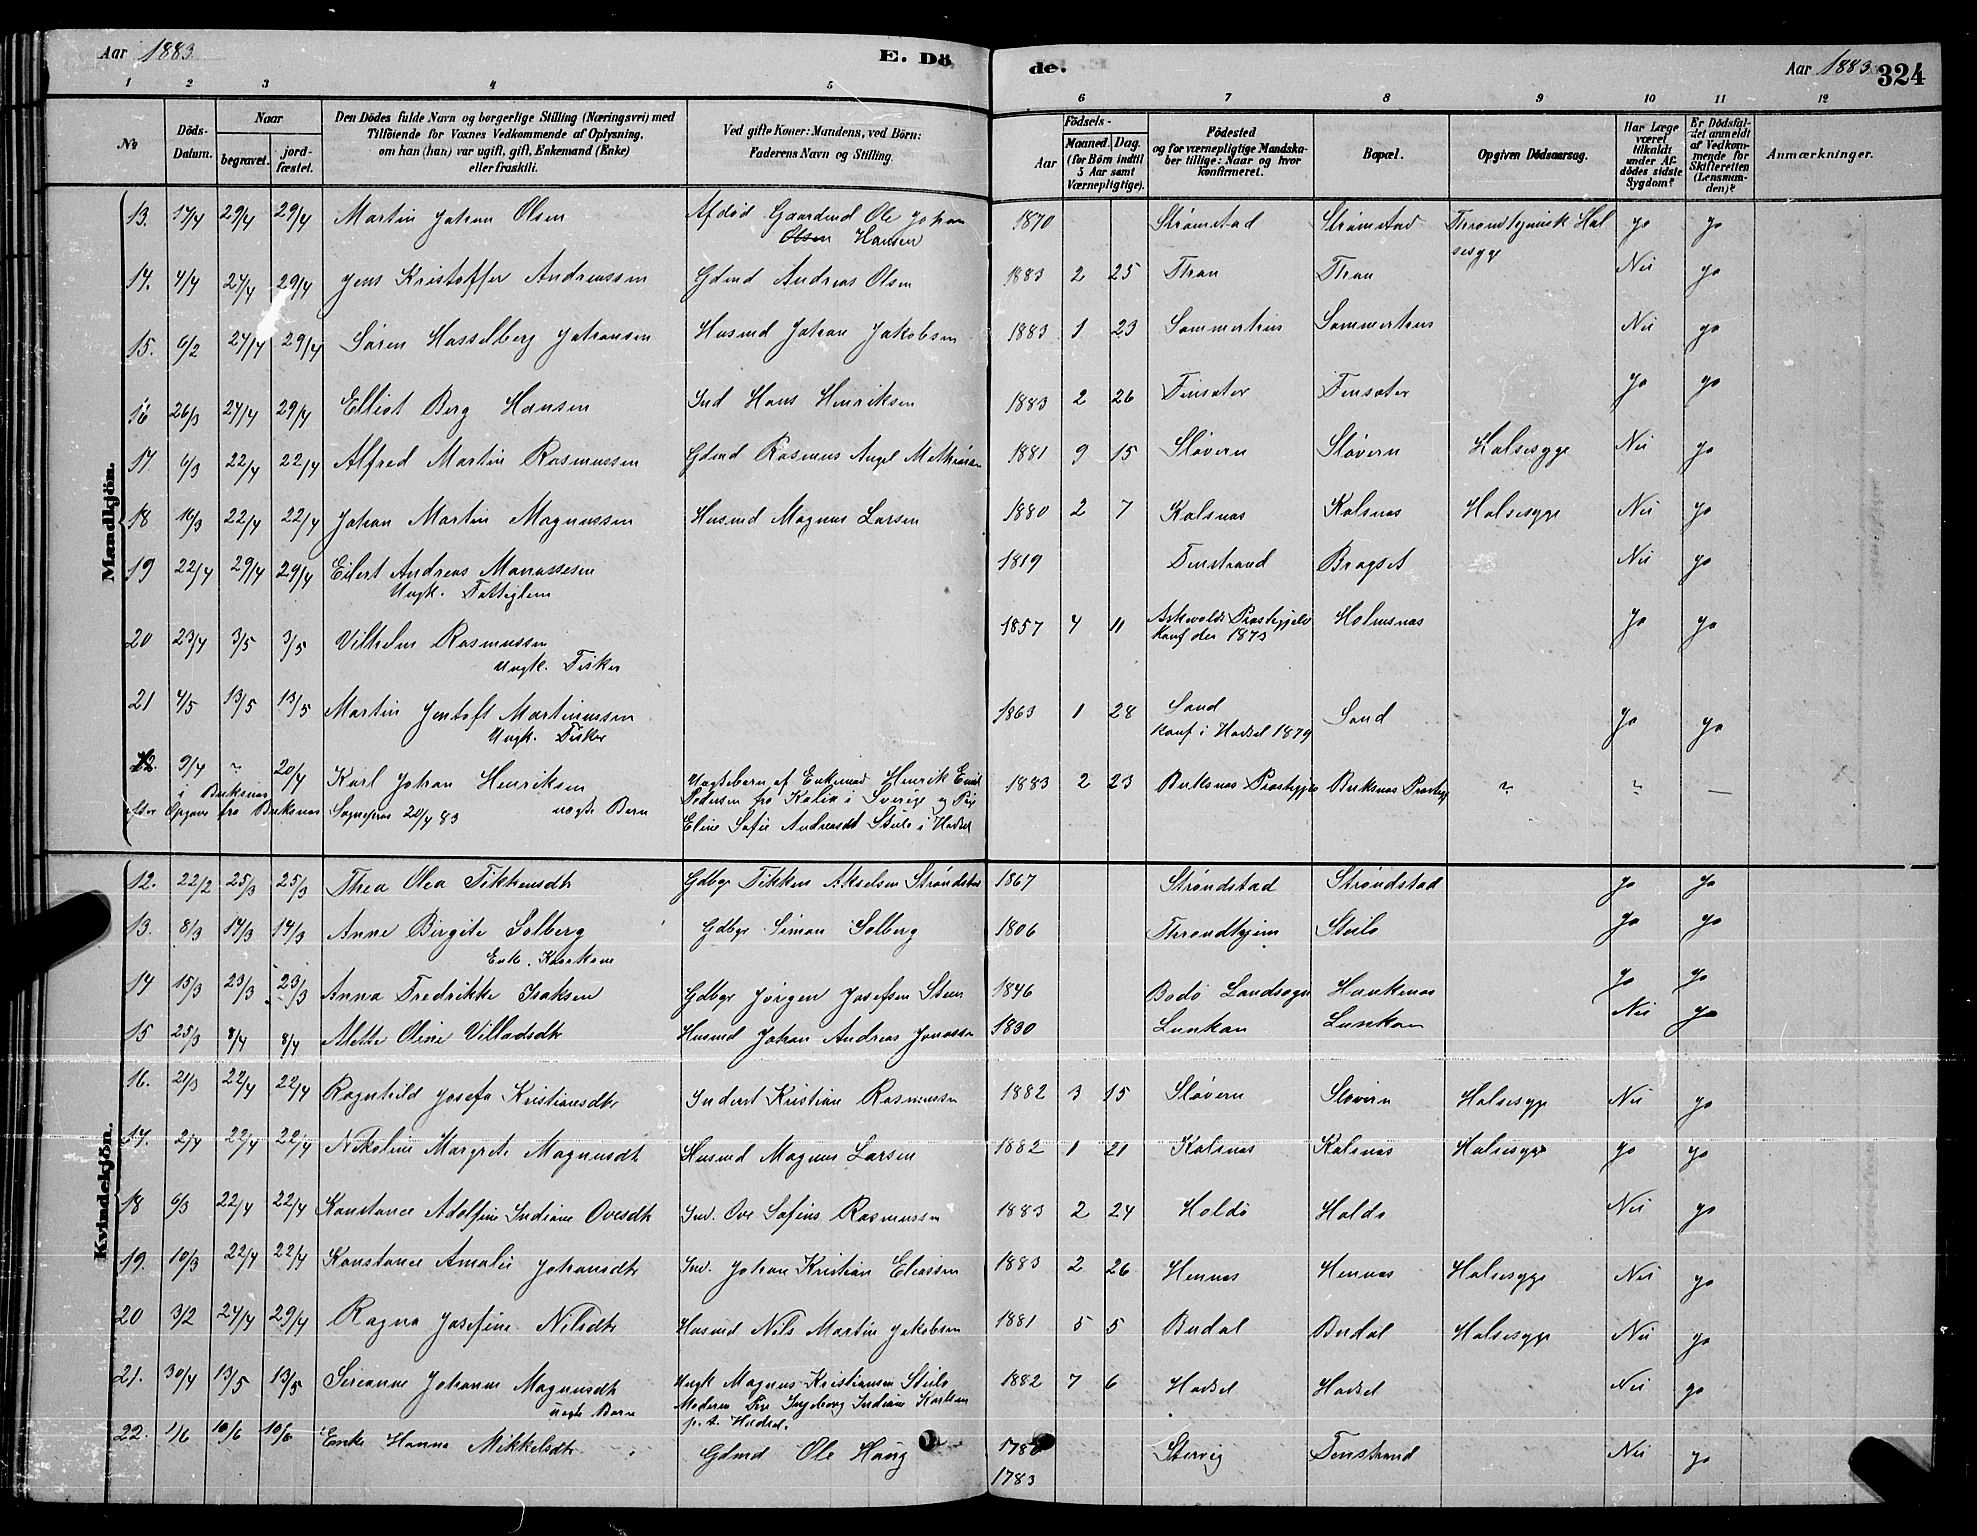 Aar 1883 E. Dö
de. Aar 1883 324
1 2 3 4 5 6 7 8 9 10 11 12
No Döds-Datum. Naar begravet. jord-fæstet. Den Dödes fulde Navn og borgerlige Stilling (Næringsvei) med Tilföiende for Voxnes Vedkommende af Oplysning, om han (hun) var ugift, gift, Enkemand (Enke) eller fraskilt. Ved gifte Koner: Mandens, ved Börn: Faderens Navn og Stilling. Födsels- Aar Maaned. Dag. (for Börn indtil 5 Aar samt Værnepligtige). Födested og for værnepligtige Mandskaber tillige: Naar og hvor konfirmeret. Bopæl. Opgiven Dödsaarsag. Har Læge været tilkaldt under Afdödes sidste Sygdom? Er Dödsfaldet anmeldt af Vedkommende for Skifteretten (Lensmanden)? Anmærkninger.
Mandkjön.
13. 17/4 29/4 29/4 Martin Johan Olsen Afdød Gaardmd Ole Johan 1870 Strømstad Strømstad Throndhjemsk Hal Ja Ja
Olsen Hansen sesyge
14. 4/4 24/4 29/4 Jens Kristoffer Andreassen Gdmd Andreas Olsen 1883 2 25 Thran Thran Nei Ja
15. 6/2 24/4 29/4 Søren Hasselberg Johansen Husmd Johan Jakobsen 1883 1 23 Sommerhus Sommerhus Nei Ja
16 26/3 24/4 29/4 Elliot Berg Hansen Ind Hans Henriksen 1883 2 26 Finsæter Finsæter Ja Ja
17 6/3 22/4 22/4 Alfred Martin Rasmussen Gdmd Rasmus Angel 1881 9 15 Sløvern Sløvern Halsesyge Nei Ja
18 16/3 22/4 22/4 Johan Martin Magnussen Husmd Magnus Larsen 1880 2 7 Kalsnes Kalsnes Halsesyge Nei Ja
19 22/4 29/4 29/4 Eilert Andreas Manassesen 1819 Finstrand Bragset Nei Ja
Ungk. Fattiglem
20 23/4 3/5 3/5 Vilhelm Rasmussen 1857 4 11 Askevolds Prestegjeld Holmsnes Ja Ja
Ungk. Fisker Konf der 1873
21 4/5 13/5 13/5 Martin Jentoft Martinussen 1863 1 28 Sand Sand Ja Ja
Ungk. Fisker Konf i Hadsel 1879
22. 9/4 " 20/4 Karl Johan Henriksen Uægtebarn af Enkemd Henrik Emil 1883 2 23 Buksnes Prestegje Buksnes Prestegj " " —
i Buksnes Pedersen fra Kalix i Sverige og Pige
efter Opgave fra Buksnes Sognepræst 20/4 83 uægte Barn Eline Sofie Andreasdt Steilo i Hadsel
Kvindekjön.
12. 22/2 25/3 25/3 Thea Olea Fikkensdtr Gdbgr Fikken Akselsen Strøndstad 1867 Strøndstad Strøndstad Ja Ja
13. 8/3 14/3 14/3 Anne Birgite Solberg Gdbgr Simon Solberg 1806 Throndhjem Steilo Ja Ja
Enke.
14 15/3 23/3 23/3 Anna Fredrikke Isaksen Gdbgr Jørgen Josefsen Steen 1846 Bodø Landsogn Haukenes Ja Ja
15 25/3 8/4 8/4 Alette Oline Villadsdtr Husmd Johan Andreas Jonassen 1830 Lunkan Lunkan Nei Ja
16. 21/3 22/4 22/4 Ragnhild Josefa Kristiansdtr Inderst Kristian Rasmussen 1882 3 15 Sløvern Sløvern Halsesyge Nei Ja
17. 2/4 22/4 22/4 Nikoline Margrete Magnusdtr Husmd Magnus Larsen 1882 1 21 Kalsnes Kalsnes Halsesyge Ja Ja
18 6/3 22/4 22/4 Konstance Adolfine Indiane Ovesdtr Ind. Ove Sofius Rasmussen 1883 2 24 Holdø Holdø Nei Ja
19. 10/3 22/4 22/4 Konstance Amalie Johansdtr Ind. Johan Kristian Eliassen 1883 2 26 Hennes Hennes Halsesyge Nei Ja
20 3/2 24/4 29/4 Ragna Josefine Nilsdtr Husmd Nils Martin Jakobsen 1881 5 5 Budal Budal Halsesyge Nei Ja
21. 30/4 13/5 13/5 Serianne Johanne Magnusdtr Ungk Magnus Kristiansen Steilo 1882 7 6 Hadsel Hadsel Nei Ja
uægte Barn Moderen Pige Ingeborg Indiane Karlsen
p. t. Hadsel.
22. 1/6 10/6 10/6 Enke Hanna Mikkelsdtr Gdmd Ole Haug 1780 Storvig Finstrand Nei Ja
1783